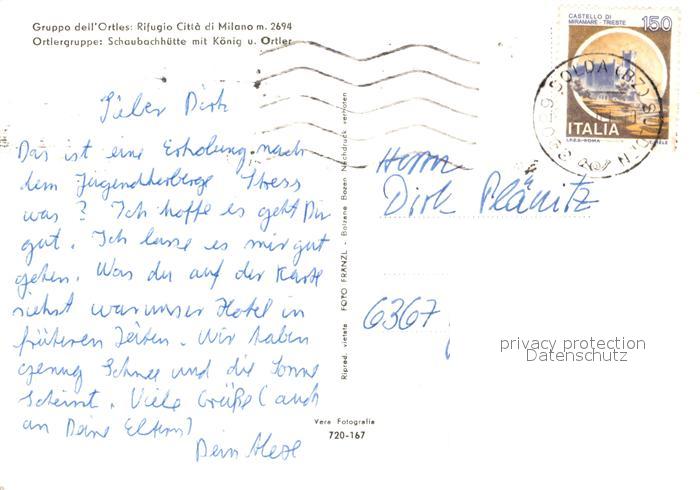 Gruppo dell'Ortles: Rifugio Città di Milano m. 2694
Ortlergruppe: Schaubachhütte mit König u. Ortler
Lieber Dirk
Das ist eine Erholung nach
dem Jugendherberge Stress
was? Ich hoffe es geht Dir
gut. Ich lasse es mir gut
gehen. Was du auf der Karte
siehst war unser Hotel in
früheren Zeiten. Wir haben
genug Schnee und die Sonne
scheint. Viele Grüße (auch
an Deine Eltern)
Dein
Ripred. vietata FOTO FRANZL - Bolzano Bozen Nachdruck verboten
Vera Fotografia
720-167
CASTELLO DI
MIRAMARE - TRIESTE
150
ITALIA
I.P.Z.S.-ROMA
39029 SOLDA (BZ) SULDEN
Herrn
Dirk Plänitz
6367
privacy protection
Datenschutz